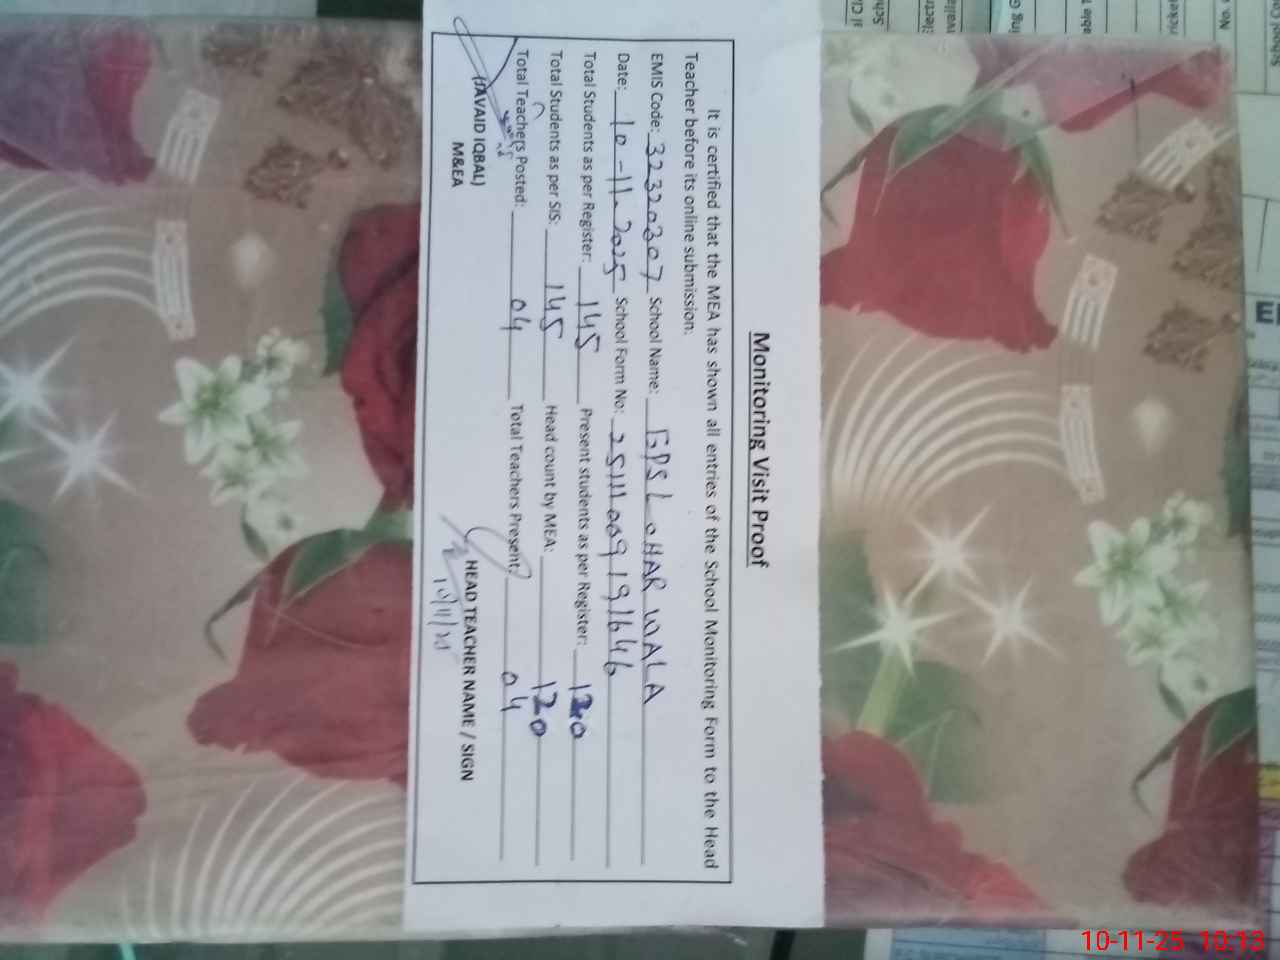 Monitoring Visit Proof
It is certified that the MEA has shown all entries of the School Monitoring Form to the Head
Teacher before its online submission:
EMIS Code: 32320307 School Name: GPS LOHAR WALA
Date: 10-11-2025 School Form No: 25111009191646
Total Students as per Register: 145 Present students as per Register: 120
Total Students as per SIS: 145 Head count by MEA: 120
Total Teachers Posted: 04 Total Teachers Present: 04
(JAVAID IQBAL) HEAD TEACHER NAME / SIGN
M&EA 10/11/25
10-11-25 10:13